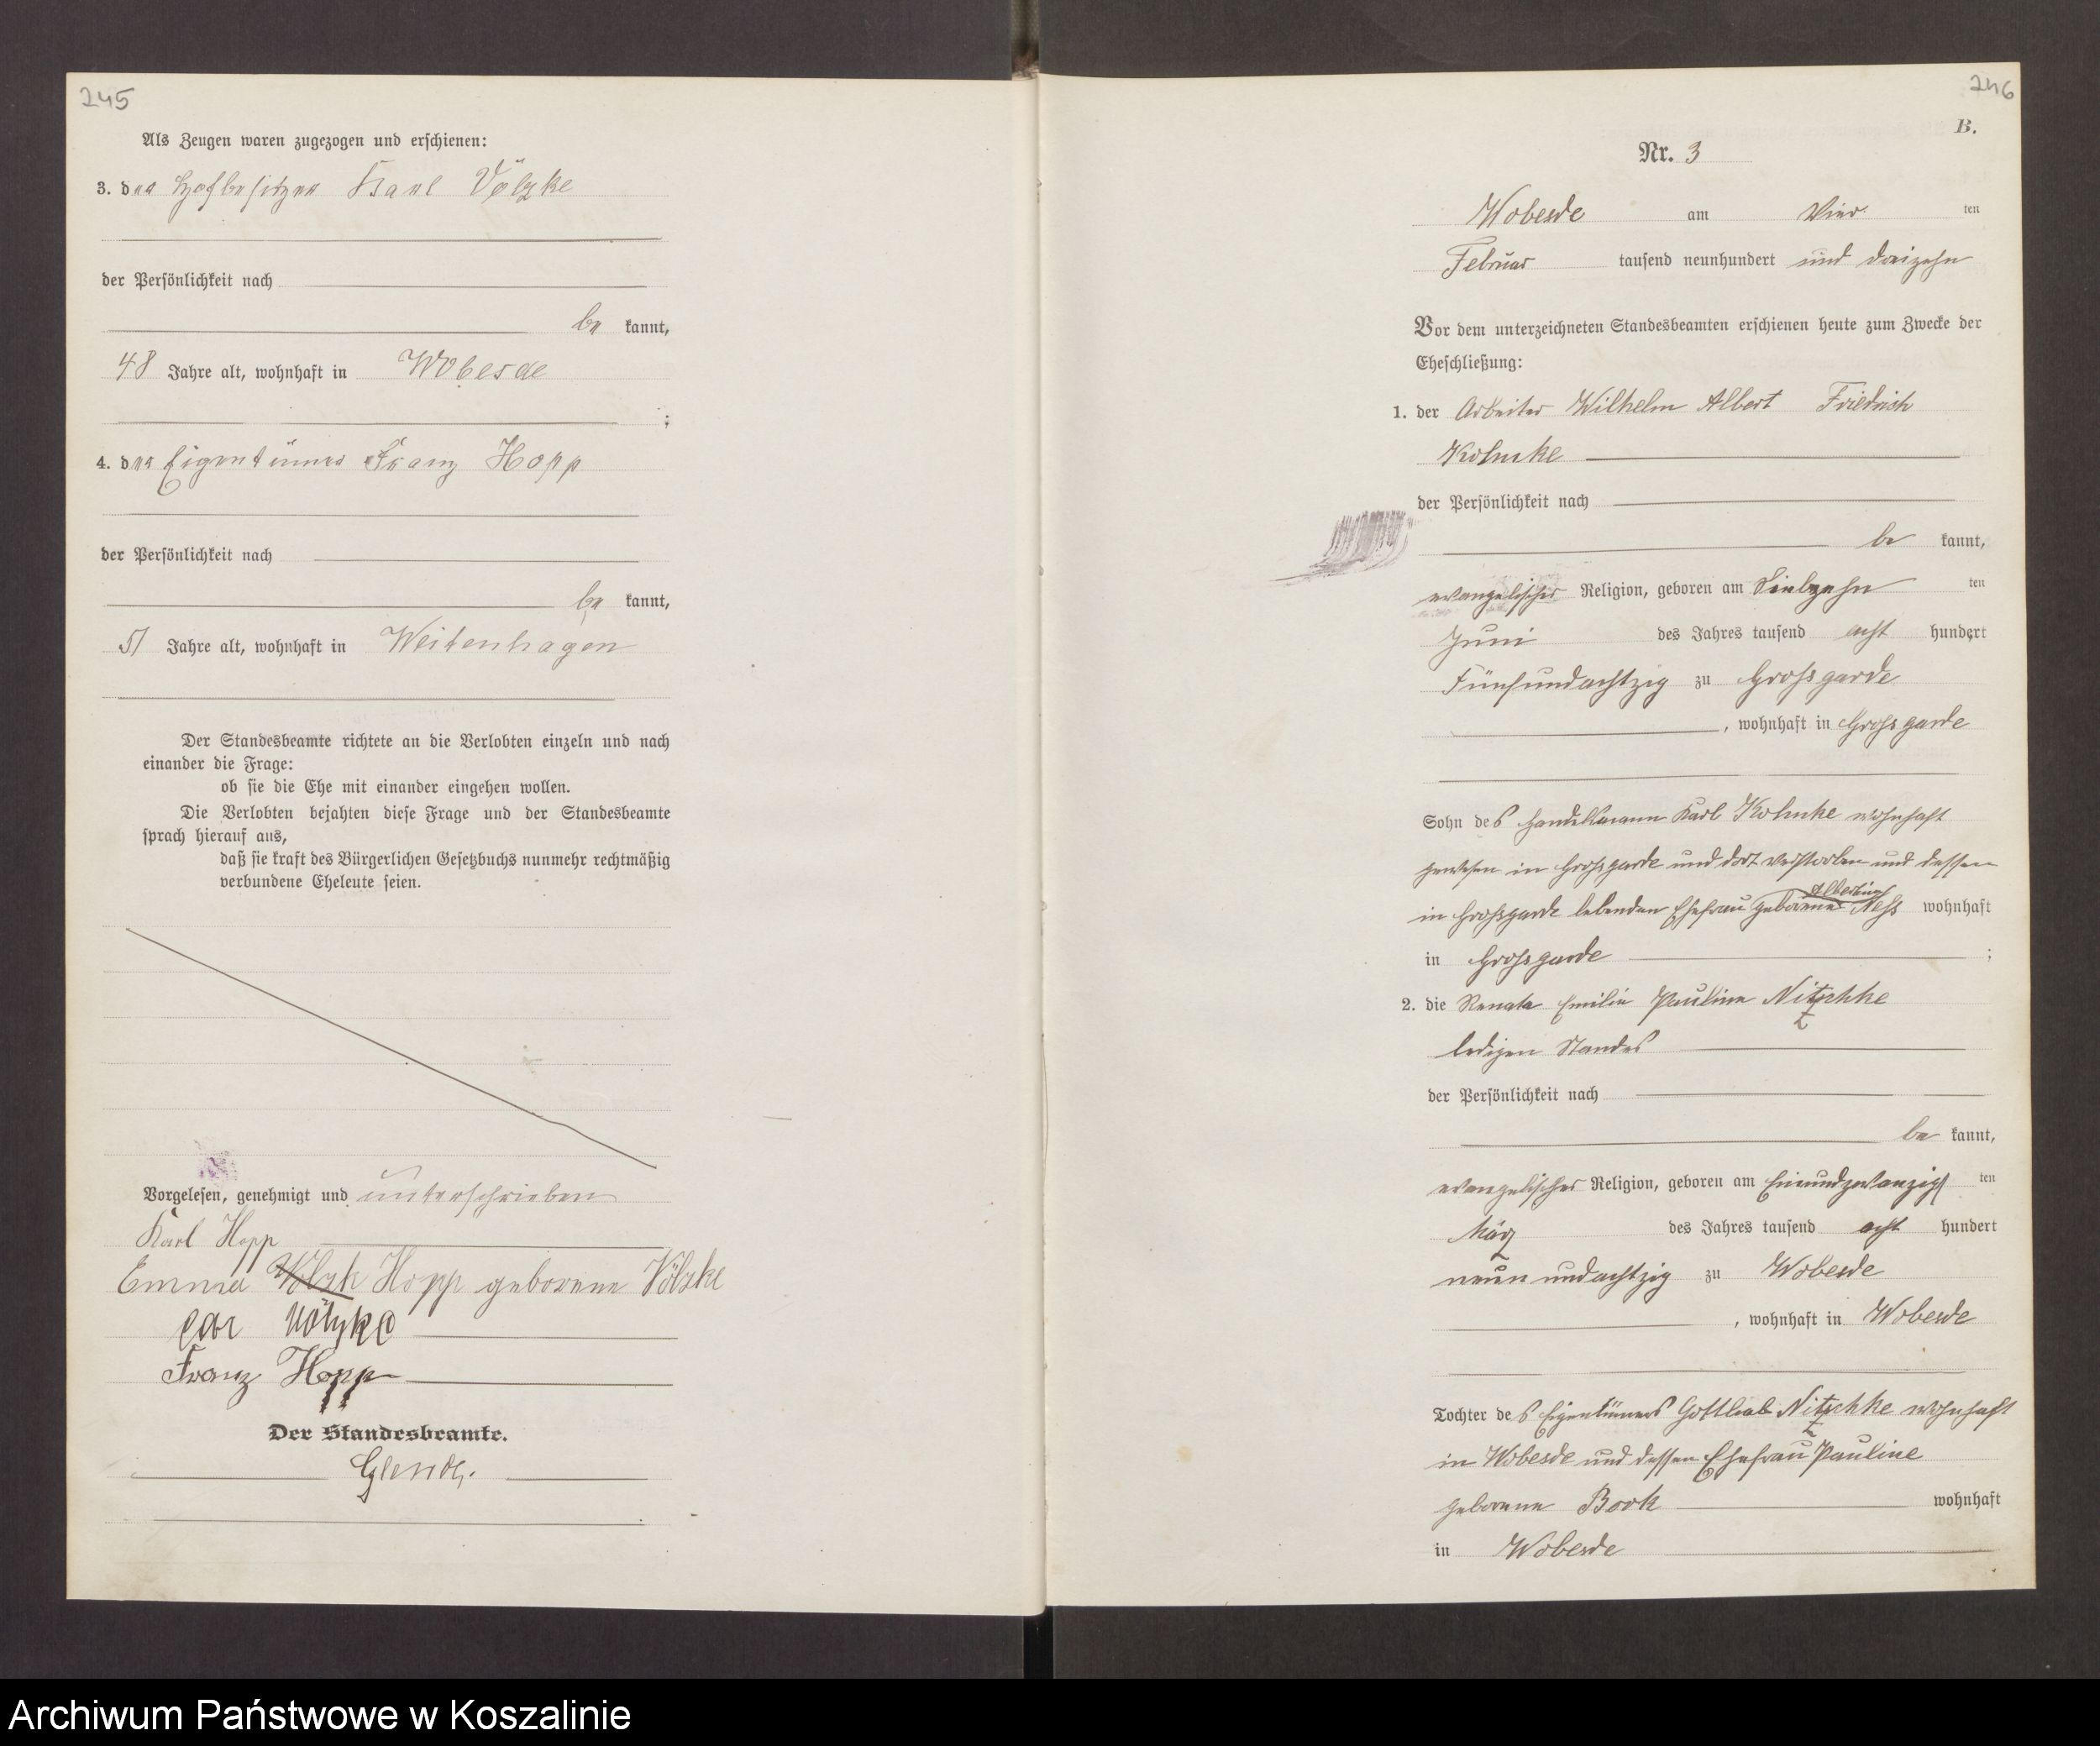 245
Als Zeugen waren zugezogen und erschienen:
3. der Hofbesitzer Karl Völzke
der Persönlichkeit nach
be kannt,
48 Jahre alt, wohnhaft in Wobesde
;
4. der Eigentümer Franz Hopp
der Persönlichkeit nach
be kannt,
51 Jahre alt, wohnhaft in Weitenhagen
Der Standesbeamte richtete an die Verlobten einzeln und nach
einander die Frage:
ob sie die Ehe mit einander eingehen wollen.
Die Verlobten bejahten diese Frage und der Standesbeamte
sprach hierauf aus,
daß sie kraft des Bürgerlichen Gesetzbuchs nunmehr rechtmäßig
verbundene Eheleute seien.
Vorgelesen, genehmigt und unterschrieben
Karl Hopp
Emma Völzk Hopp geborene Völzke
Völzke
Franz Hopp
Der Standesbeamte.
246
B.
Nr. 3
Wobesde am Vier ten
Februar tausend neunhundert und dreizehn
Vor dem unterzeichneten Standesbeamten erschienen heute zum Zwecke der
Eheschließung:
1. der Arbeiter Wilhelm Albert Friedrich
Kohnke
der Persönlichkeit nach
be kannt,
evangelischer Religion, geboren am Siebzehn ten
Juni des Jahres tausend acht hundert
Fünfundachtzig zu Grossgarde
, wohnhaft in Grossgarde
Sohn des Handelsmann Karl Kohnke wohnhaft
gewesen in Grossgarde und dort verstorben und dessen
Albertine
in Grossgarde lebenden Ehefrau geborene Ness wohnhaft
in Grossgarde ;
2. die Renate Emilie Pauline Nitzschke
ledigen Standes
der Persönlichkeit nach
be kannt,
evangelischer Religion, geboren am Einundzwanzigs ten
März des Jahres tausend acht hundert
neun undachtzig zu Wobesde
, wohnhaft in Wobesde
Tochter des Eigentümers Gottlieb Nitzschke wohnhaft
in Wobesde und dessen Ehefrau Pauline
geborene Book wohnhaft
in Wobesde
Archiwum Państwowe w Koszalinie